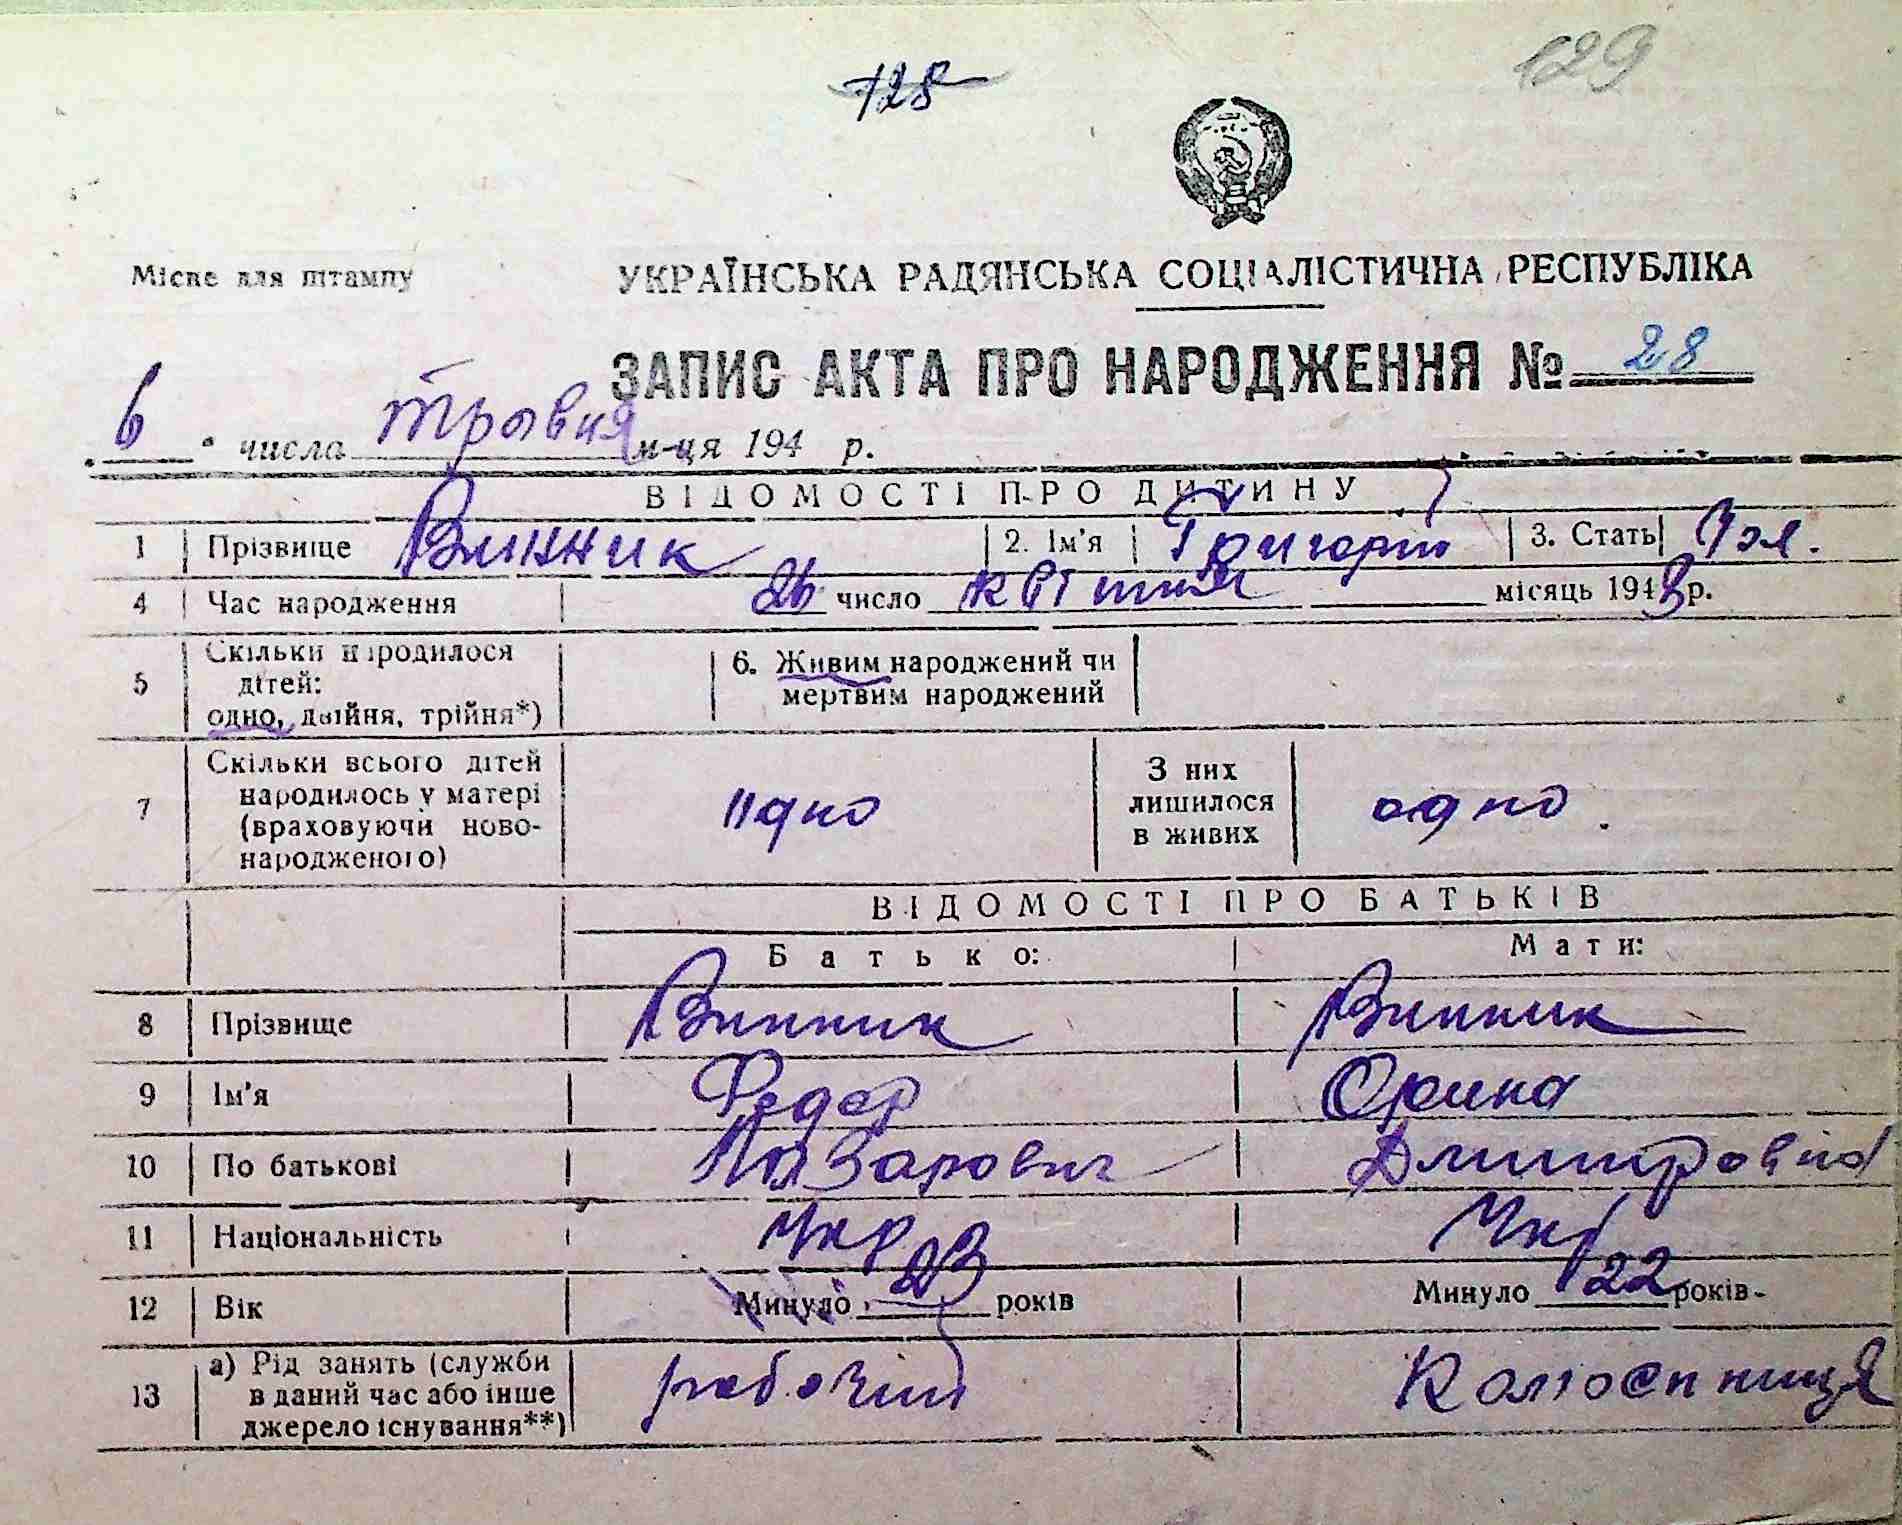 128
129
Місце для штампу
УКРАЇНСЬКА РАДЯНСЬКА СОЦІАЛІСТИЧНА РЕСПУБЛІКА
ЗАПИС АКТА ПРО НАРОДЖЕННЯ № 28
6 " числа травня м-ця 194 р.
ВІДОМОСТІ ПРО ДИТИНУ
1 Прізвище Винник 2. Ім'я Григорій 3. Стать Чол.
4 Час народження 26 число квітня місяць 1943 р.
5 Скільки народилося дітей: одно, двійня, трійня*) 6. Живим народжений чи мертвим народжений
7 Скільки всього дітей народилось у матері (враховуючи новонародженого) одно З них лишилося в живих одно.
ВІДОМОСТІ ПРО БАТЬКІВ
Батько: Мати:
8 Прізвище Винник Винник
9 Ім'я Федор Орина
10 По батькові Назарович Дмитровна
11 Національність Укр Укр
12 Вік Минуло 23 років Минуло 22 років
13 а) Рід занять (служби в даний час або інше джерело існування**) робочий